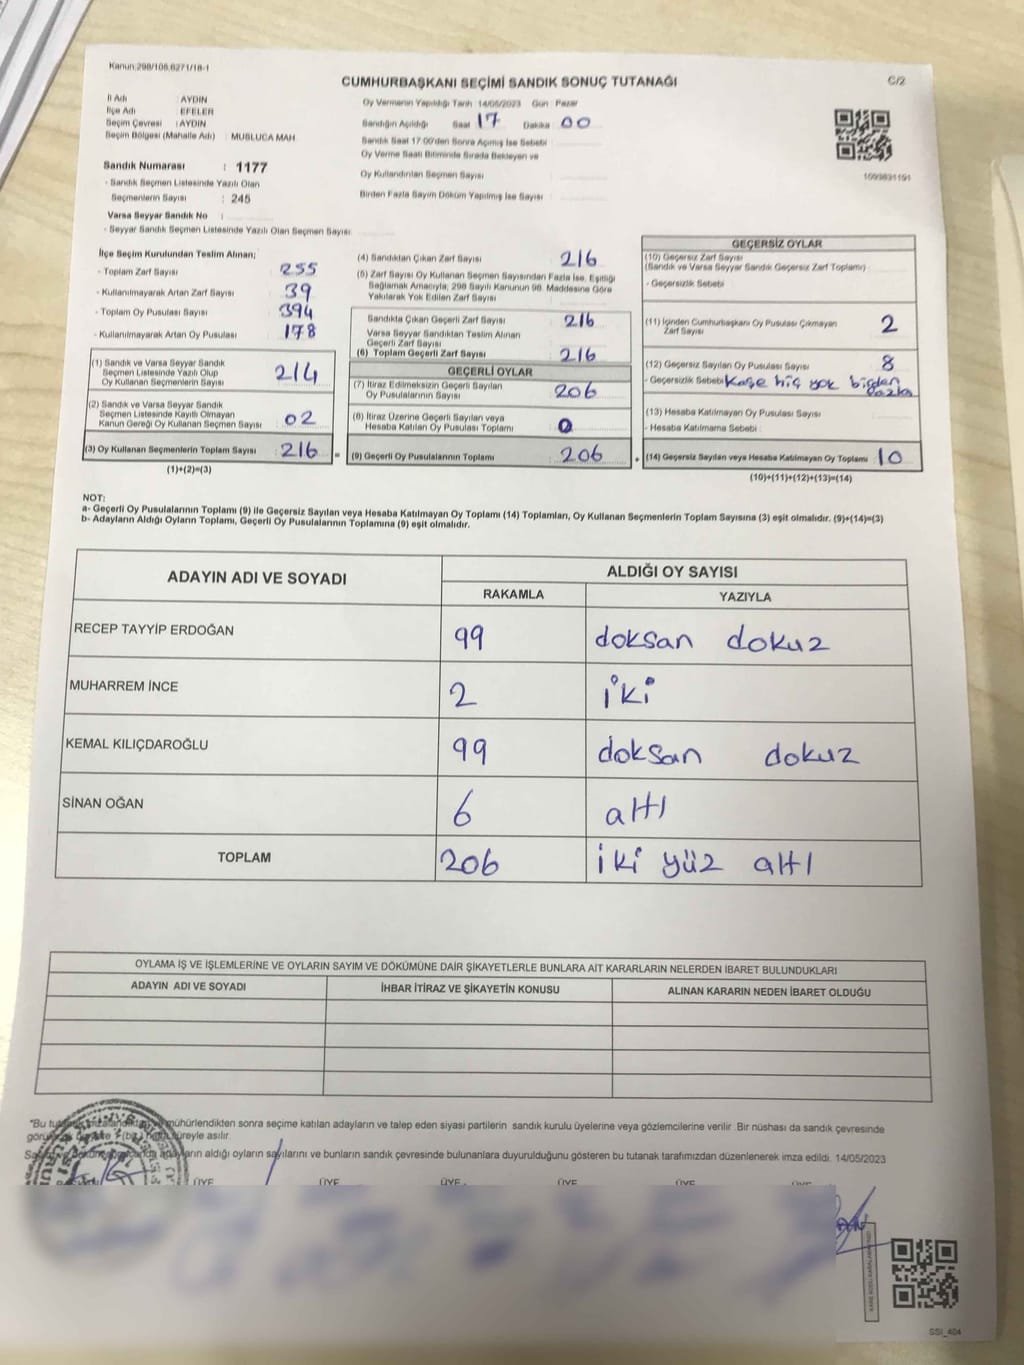 Kanun:298/106,6271/18-1
CUMHURBAŞKANI SEÇİMİ SANDIK SONUÇ TUTANAĞI
C/2
İl Adı : AYDIN
İlçe Adı : EFELER
Seçim Çevresi : AYDIN
Seçim Bölgesi (Mahalle Adı) : MUSLUCA MAH.
Oy Vermenin Yapıldığı Tarih 14/05/2023 Gün Pazar
Sandığın Açıldığı Saat 17 Dakika 00
Sandık Saat 17.00'den Sonra Açımış İse Sebebi
Oy Verme Saati Bitiminde Sırada Bekleyen ve
Oy Kullandırılan Seçmen Sayısı
Birden Fazla Sayım Döküm Yapılmış İse Sayısı
Sandık Numarası : 1177
- Sandık Seçmen Listesinde Yazılı Olan
Seçmenlerin Sayısı : 245
Varsa Seyyar Sandık No :
- Seyyar Sandık Seçmen Listesinde Yazılı Olan Seçmen Sayısı:
İlçe Seçim Kurulundan Teslim Alınan;
- Toplam Zarf Sayısı 255
- Kullanılmayarak Artan Zarf Sayısı 39
- Toplam Oy Pusulası Sayısı 394
- Kullanılmayarak Artan Oy Pusulası 178
(1) Sandık ve Varsa Seyyar Sandık
Seçmen Listesinde Yazılı Olup
Oy Kullanan Seçmenlerin Sayısı 214
(2) Sandık ve Varsa Seyyar Sandık
Seçmen Listesinde Kayıtlı Olmayan
Kanun Gereği Oy Kullanan Seçmen Sayısı 02
(3) Oy Kullanan Seçmenlerin Toplam Sayısı 216 =
(1)+(2)=(3)
(4) Sandıktan Çıkan Zarf Sayısı 216
(5) Zarf Sayısı Oy Kullanan Seçmen Sayısından Fazla İse, Eşitliği
Sağlamak Amacıyla; 298 Sayılı Kanunun 98. Maddesine Göre
Yakılarak Yok Edilen Zarf Sayısı
Sandıkta Çıkan Geçerli Zarf Sayısı 216
Varsa Seyyar Sandıktan Teslim Alınan
Geçerli Zarf Sayısı
(6) Toplam Geçerli Zarf Sayısı 216
GEÇERLİ OYLAR
(7) İtiraz Edilmeksizin Geçerli Sayılan
Oy Pusulalarının Sayısı 206
(8) İtiraz Üzerine Geçerli Sayılan veya
Hesaba Katılan Oy Pusulası Toplamı 0
(9) Geçerli Oy Pusulalarının Toplamı 206 +
GEÇERSİZ OYLAR
(10) Geçersiz Zarf Sayısı
(Sandık ve Varsa Seyyar Sandık Geçersiz Zarf Toplamı) :
- Geçersizlik Sebebi
(11) İçinden Cumhurbaşkanı Oy Pusulası Çıkmayan
Zarf Sayısı 2
(12) Geçersiz Sayılan Oy Pusulası Sayısı 8
- Geçersizlik Sebebi Kaşe hiç yok birden fazla
(13) Hesaba Katılmayan Oy Pusulası Sayısı
- Hesaba Katılmama Sebebi :
(14) Geçersiz Sayılan veya Hesaba Katılmayan Oy Toplamı 10
(10)+(11)+(12)+(13)=(14)
NOT:
a- Geçerli Oy Pusulalarının Toplamı (9) ile Geçersiz Sayılan veya Hesaba Katılmayan Oy Toplamı (14) Toplamları, Oy Kullanan Seçmenlerin Toplam Sayısına (3) eşit olmalıdır. (9)+(14)=(3)
b- Adayların Aldığı Oyların Toplamı, Geçerli Oy Pusulalarının Toplamına (9) eşit olmalıdır.
ADAYIN ADI VE SOYADI
ALDIĞI OY SAYISI
RAKAMLA YAZIYLA
RECEP TAYYİP ERDOĞAN 99 doksan dokuz
MUHARREM İNCE 2 iki
KEMAL KILIÇDAROĞLU 99 doksan dokuz
SİNAN OĞAN 6 altı
TOPLAM 206 iki yüz altı
OYLAMA İŞ VE İŞLEMLERİNE VE OYLARIN SAYIM VE DÖKÜMÜNE DAİR ŞİKAYETLERLE BUNLARA AİT KARARLARIN NELERDEN İBARET BULUNDUKLARI
ADAYIN ADI VE SOYADI İHBAR İTİRAZ VE ŞİKAYETİN KONUSU ALINAN KARARIN NEDEN İBARET OLDUĞU
"Bu mühürlendikten sonra seçime katılan adayların ve talep eden siyasi partilerin sandık kurulu üyelerine veya gözlemcilerine verilir. Bir nüshası da sandık çevresinde
süreyle asılır.
adayların aldığı oyların sayılarını ve bunların sandık çevresinde bulunanlara duyurulduğunu gösteren bu tutanak tarafımızdan düzenlenerek imza edildi. 14/05/2023
ÜYE ÜYE ÜYE ÜYE ÜYE
SSI_404